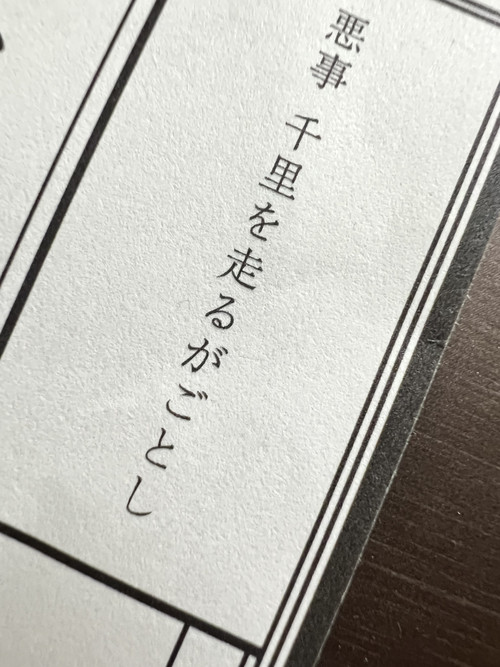 悪事 千里を走るがごとし